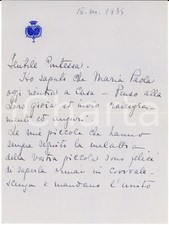 18. III. 1935
Gentile Contessa,
Ho saputo che Maria Paola
oggi rientra a Casa - Penso alla
Loro gioia ed invio
menti ed auguri
Le mie piccole che hanno
sempre seguito la malattia
della Vostra piccola sono felici
di saperla ormai in
e mandano l'unito